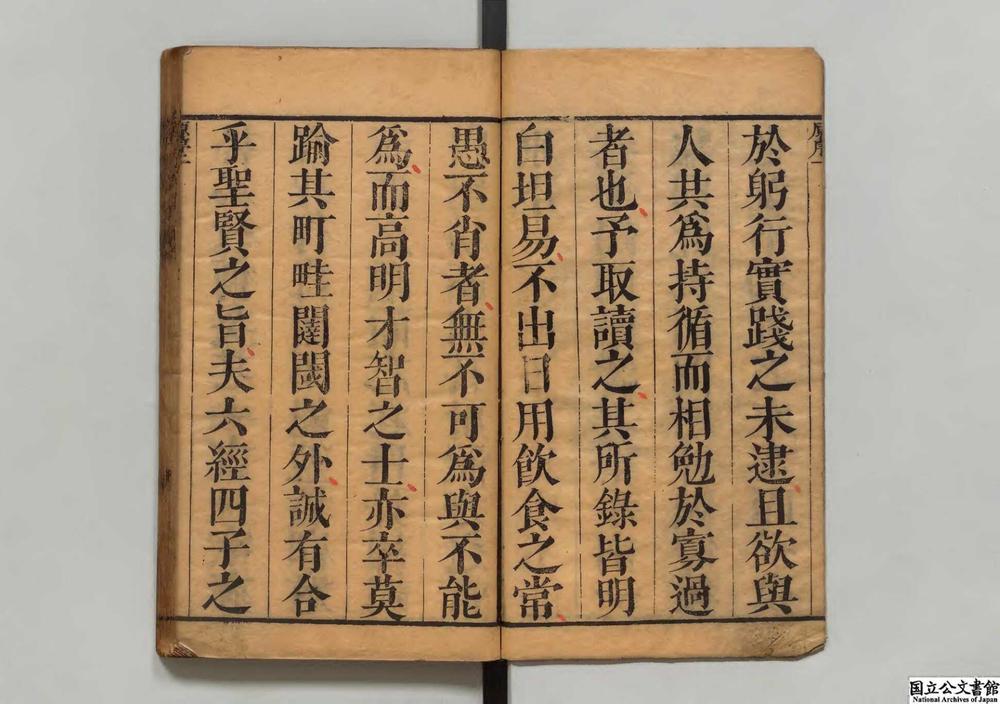 於躬行實踐之未逮且欲與
人共為持循而相勉於寡過
者也予取讀之其所錄皆明
白坦易不出日用飲食之常
愚不肖者無不可為與不能
為而高明才智之士亦卒莫
踰其町畦闉闍之外誠有合
乎聖賢之旨夫六經四子之
国立公文書館
National Archives of Japan